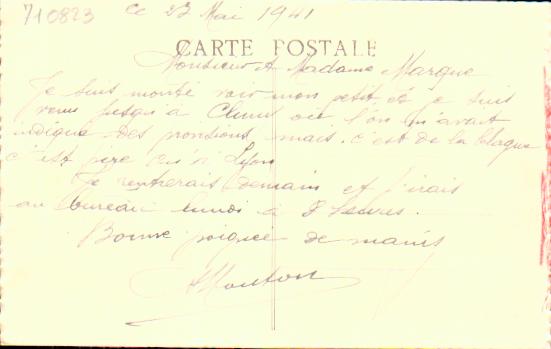 710823
Ce 23 Mai 1941
CARTE POSTALE
Monsieur et Madame Marque
Je suis monté voir mon petit et je suis
venu jusqu'à où l'on m'avait
indiqué des provisions mais c'est de la blague
c'est pire qu'à Lyon
Je rentrerais demain et j'irais
au bureau lundi à 8 heures.
Bonne poignée de mains
Mouton